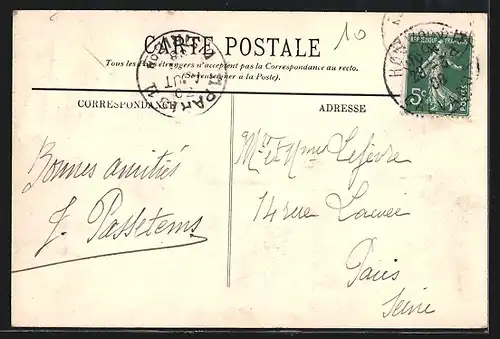 CARTE POSTALE
10
Tous les Pays étrangers n'acceptent pas la Correspondance au recto.
(Se renseigner à la Poste).
CORRESPONDANCE
ADRESSE
5c
Bonnes amitiés
J. Passetems
Mr et Mme Lefèvre
14 rue
Paris
Seine